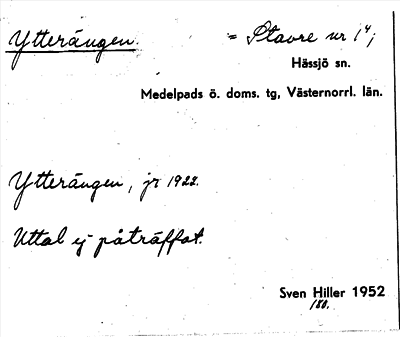 Ytterängen. = Stavre nr 1⁴;
Hässjö sn.
Medelpads ö. doms. tg, Västernorrl. län.
Ytterängen, jr 1922.
Uttal ej påträffat.
Sven Hiller 1952
/SH.